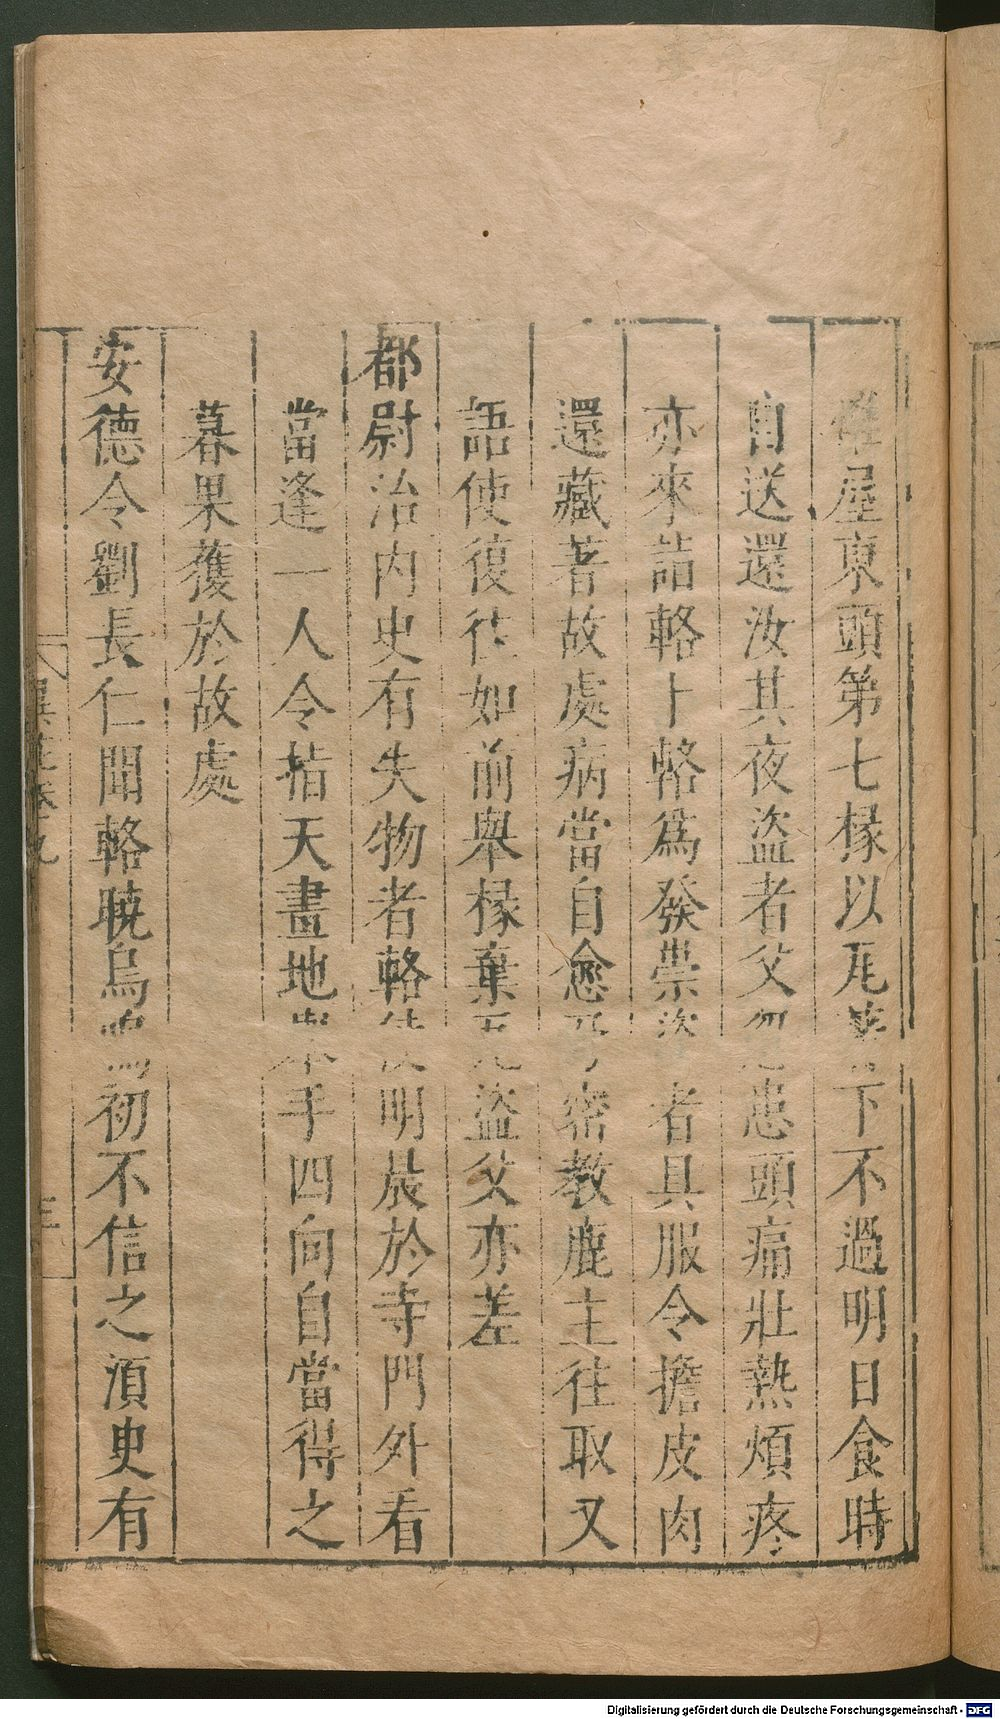 碓屋東頭第七椽以瓦著下不過明日食時
自送還汝其夜盜者父忽患頭痛壯熱煩疼
亦來詣輅卜輅為發祟盜者具服令擔皮肉
還藏著故處病當自愈乃密教鹿主往取又
語使復往如前舉椽棄瓦盜父亦差
都尉治內史有失物者輅使明晨於寺門外看
當逢一人令指天畫地舉手四向自當得之
暮果獲於故處
安德令劉長仁聞輅曉鳥鳴初不信之須臾有
異苑卷九
Digitalisierung gefördert durch die Deutsche Forschungsgemeinschaft - DFG